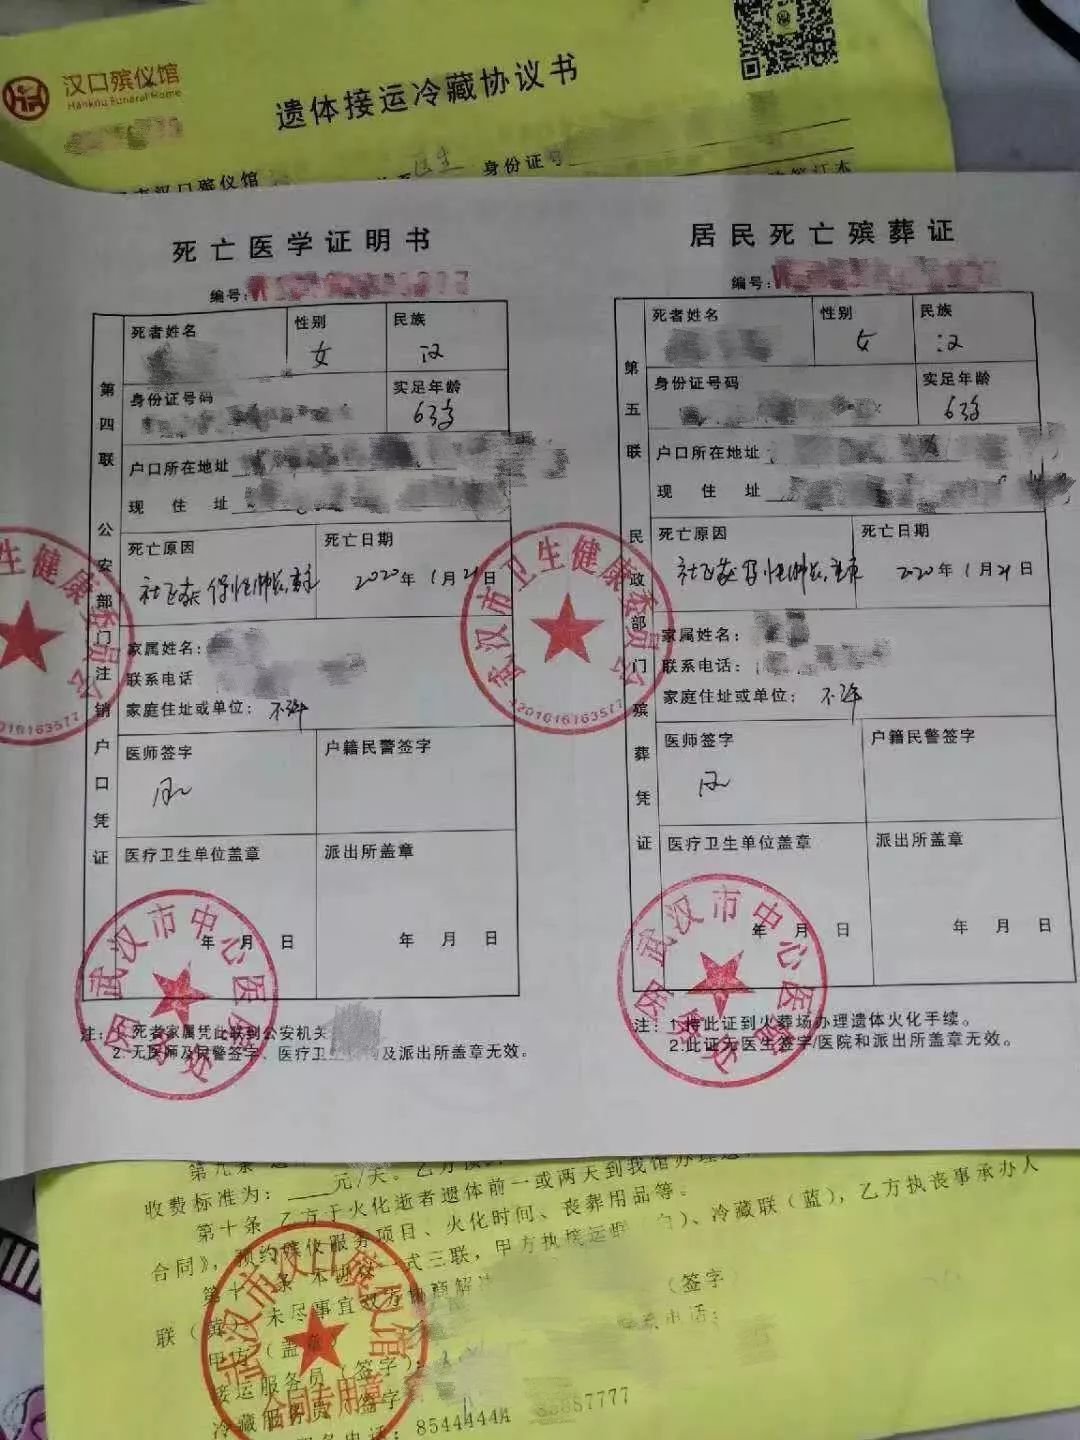 汉口殡仪馆
Hankou Funeral Home
遗体接运冷藏协议书
医生 身份证号
汉口殡仪馆
死亡医学证明书
编号:
第四联 公安部门注销户口凭证
死者姓名
性别
女
民族
汉
身份证号码
实足年龄
63岁
户口所在地址
现住址
死亡原因
社区获得性肺炎,重症
死亡日期
2020年1月21日
家属姓名:
联系电话
家庭住址或单位: 不详
医师签字
户籍民警签字
医疗卫生单位盖章
年 月 日
派出所盖章
年 月 日
注: 1.死者家属凭此联到公安机关
2.无医师及民警签字、医疗卫生 及派出所盖章无效。
居民死亡殡葬证
编号:
第五联 民政部门殡葬凭证
死者姓名
性别
女
民族
汉
身份证号码
实足年龄
63岁
户口所在地址
现住址
死亡原因
社区获得性肺炎,重症
死亡日期
2020年1月21日
家属姓名:
联系电话:
家庭住址或单位: 不详
医师签字
户籍民警签字
医疗卫生单位盖章
年 月 日
派出所盖章
年 月 日
注: 1.持此证到火葬场办理遗体火化手续。
2.此证无医生签字/医院和派出所盖章无效。
生健康委员会
武汉市卫生健康委员会
4201016163577
武汉市中心医院
武汉市中心医院
第九条
收费标准为: 元/天。乙方
第十条 乙方于火化逝者遗体前一或两天到我馆办理
合同》,预约殡仪服务项目、火化时间、丧葬用品等。
第十一条 本协议一式三联,甲方执接运联(白)、冷藏联(蓝),乙方执丧事承办人
联(黄)。未尽事宜双方协商解决
甲方(盖章) (签字)
接运服务员(签字): 联系电话:
冷藏服务员(签字)
服务电话: 85444444 85887777
武汉市汉口殡仪馆
合同专用章